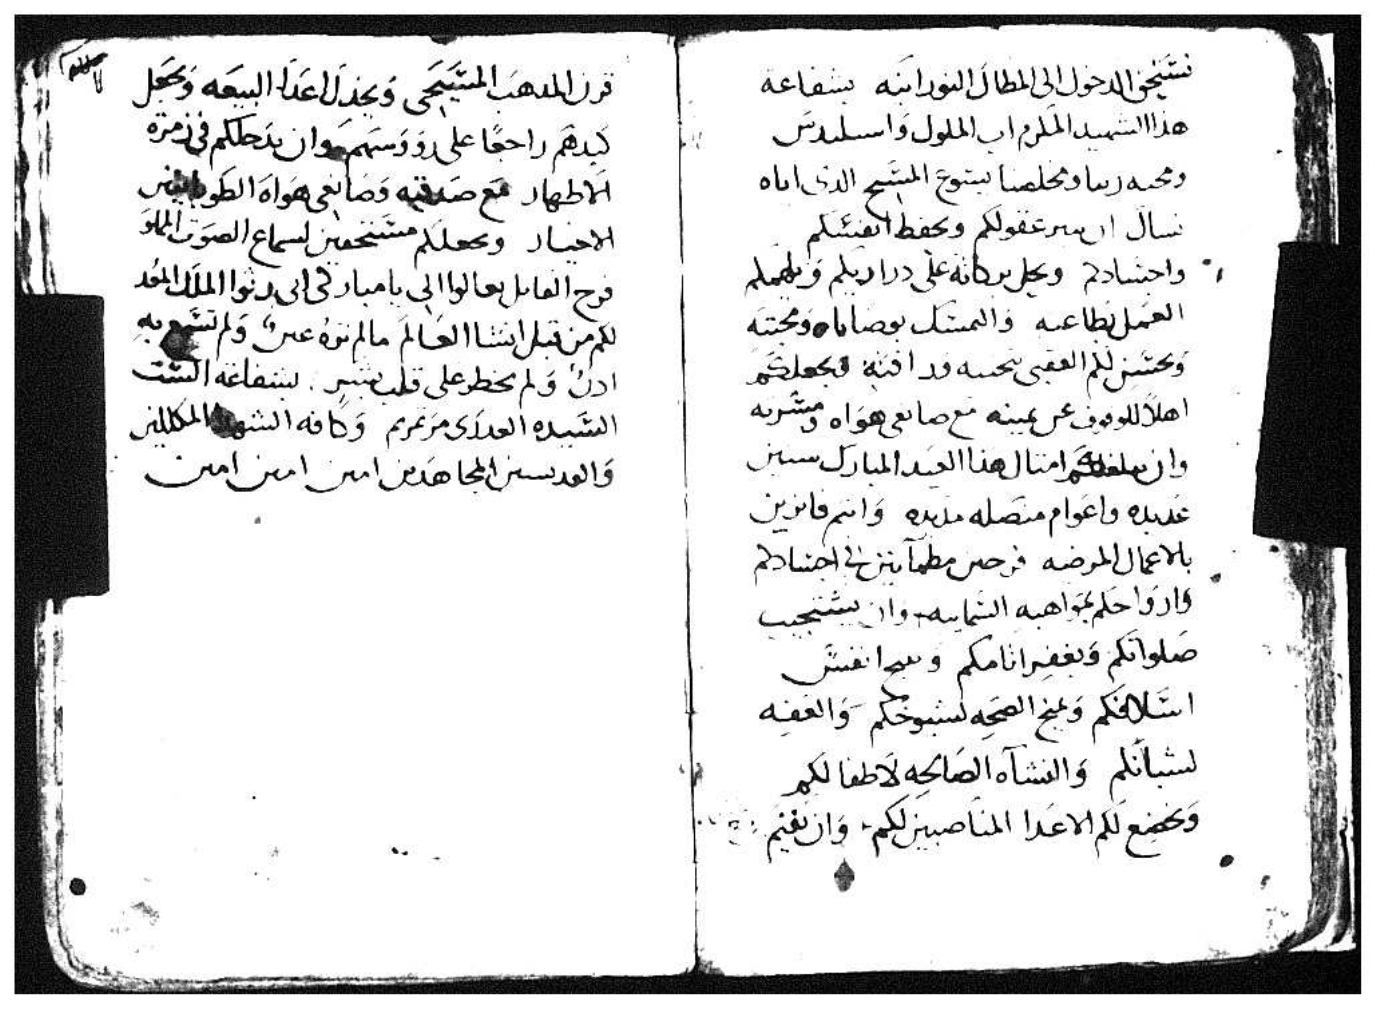 نستحق الدخول الى المظال النورانيه بشفاعة
هذا الشهيد المكرم اب الملوك واسيليدس
ومحبه ربنا ومخلصنا يسوع المسيح الذى اياه
نسال ان ينير عقولكم ويحفظ انفسكم
واجسادكم ويحل بركاته على دراريكم ويلهمكم
العمل بطاعته والتمسك بوصاياه ومحبته
ويحسن لكم العقبى بتحننه ورافته ويجعلكم
اهلاً للوقوف عن يمينه مع صانعى هواه ومسرته
وان يبلغكم امثال هذا العيد المبارك سنين
عديده واعوام متصله مديده وانتم فايزين
بالاعمال المرضيه فرحين مطمآنين فى اجسادكم
وارواحكم بمواهبه السماييه وان يستجيب
صلواتكم ويغفر اثامكم وينيح انفس
اسلافكم ويمنح الصحه لشيوخكم والعفه
لشبانكم والنشآه الصالحه لاطفالكم
ويخضع لكم الاعدا المناصبين لكم وان يقيم
قرن المذهب المسيحى ويخذل اعدا البيعه ويجعل
كيدهم راجعًا على رووسهم وان يدخلكم فى زمرة
الاطهار مع صديقيه وصانعى هواه الطوبانيين
الاخيار ويجعلكم مستحقين لسماع الصوت المملو
فرح القايل تعالوا الى يا مباركى ابى رثوا الملك المعد
لكم من قبل انشا العالم مالم تره عين ولم تسمع به
ادن ولم يخطر على قلب بشر بشفاعة الست
السيده العدرى مرتمريم وكافه الشهدا المكللين
والقديسين المجاهدين امين امين امين